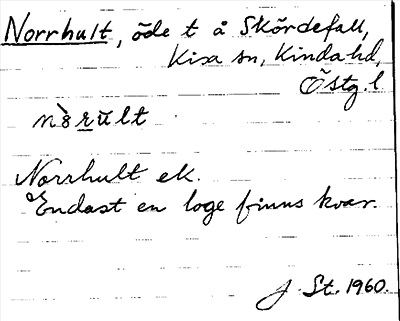 Norrhult, öde t å Skördefall,
Kisa sn, Kinda hd,
Östg. l
nò̀rult
Norrhult ek.
Endast en loge finns kvar.
J. St. 1960.